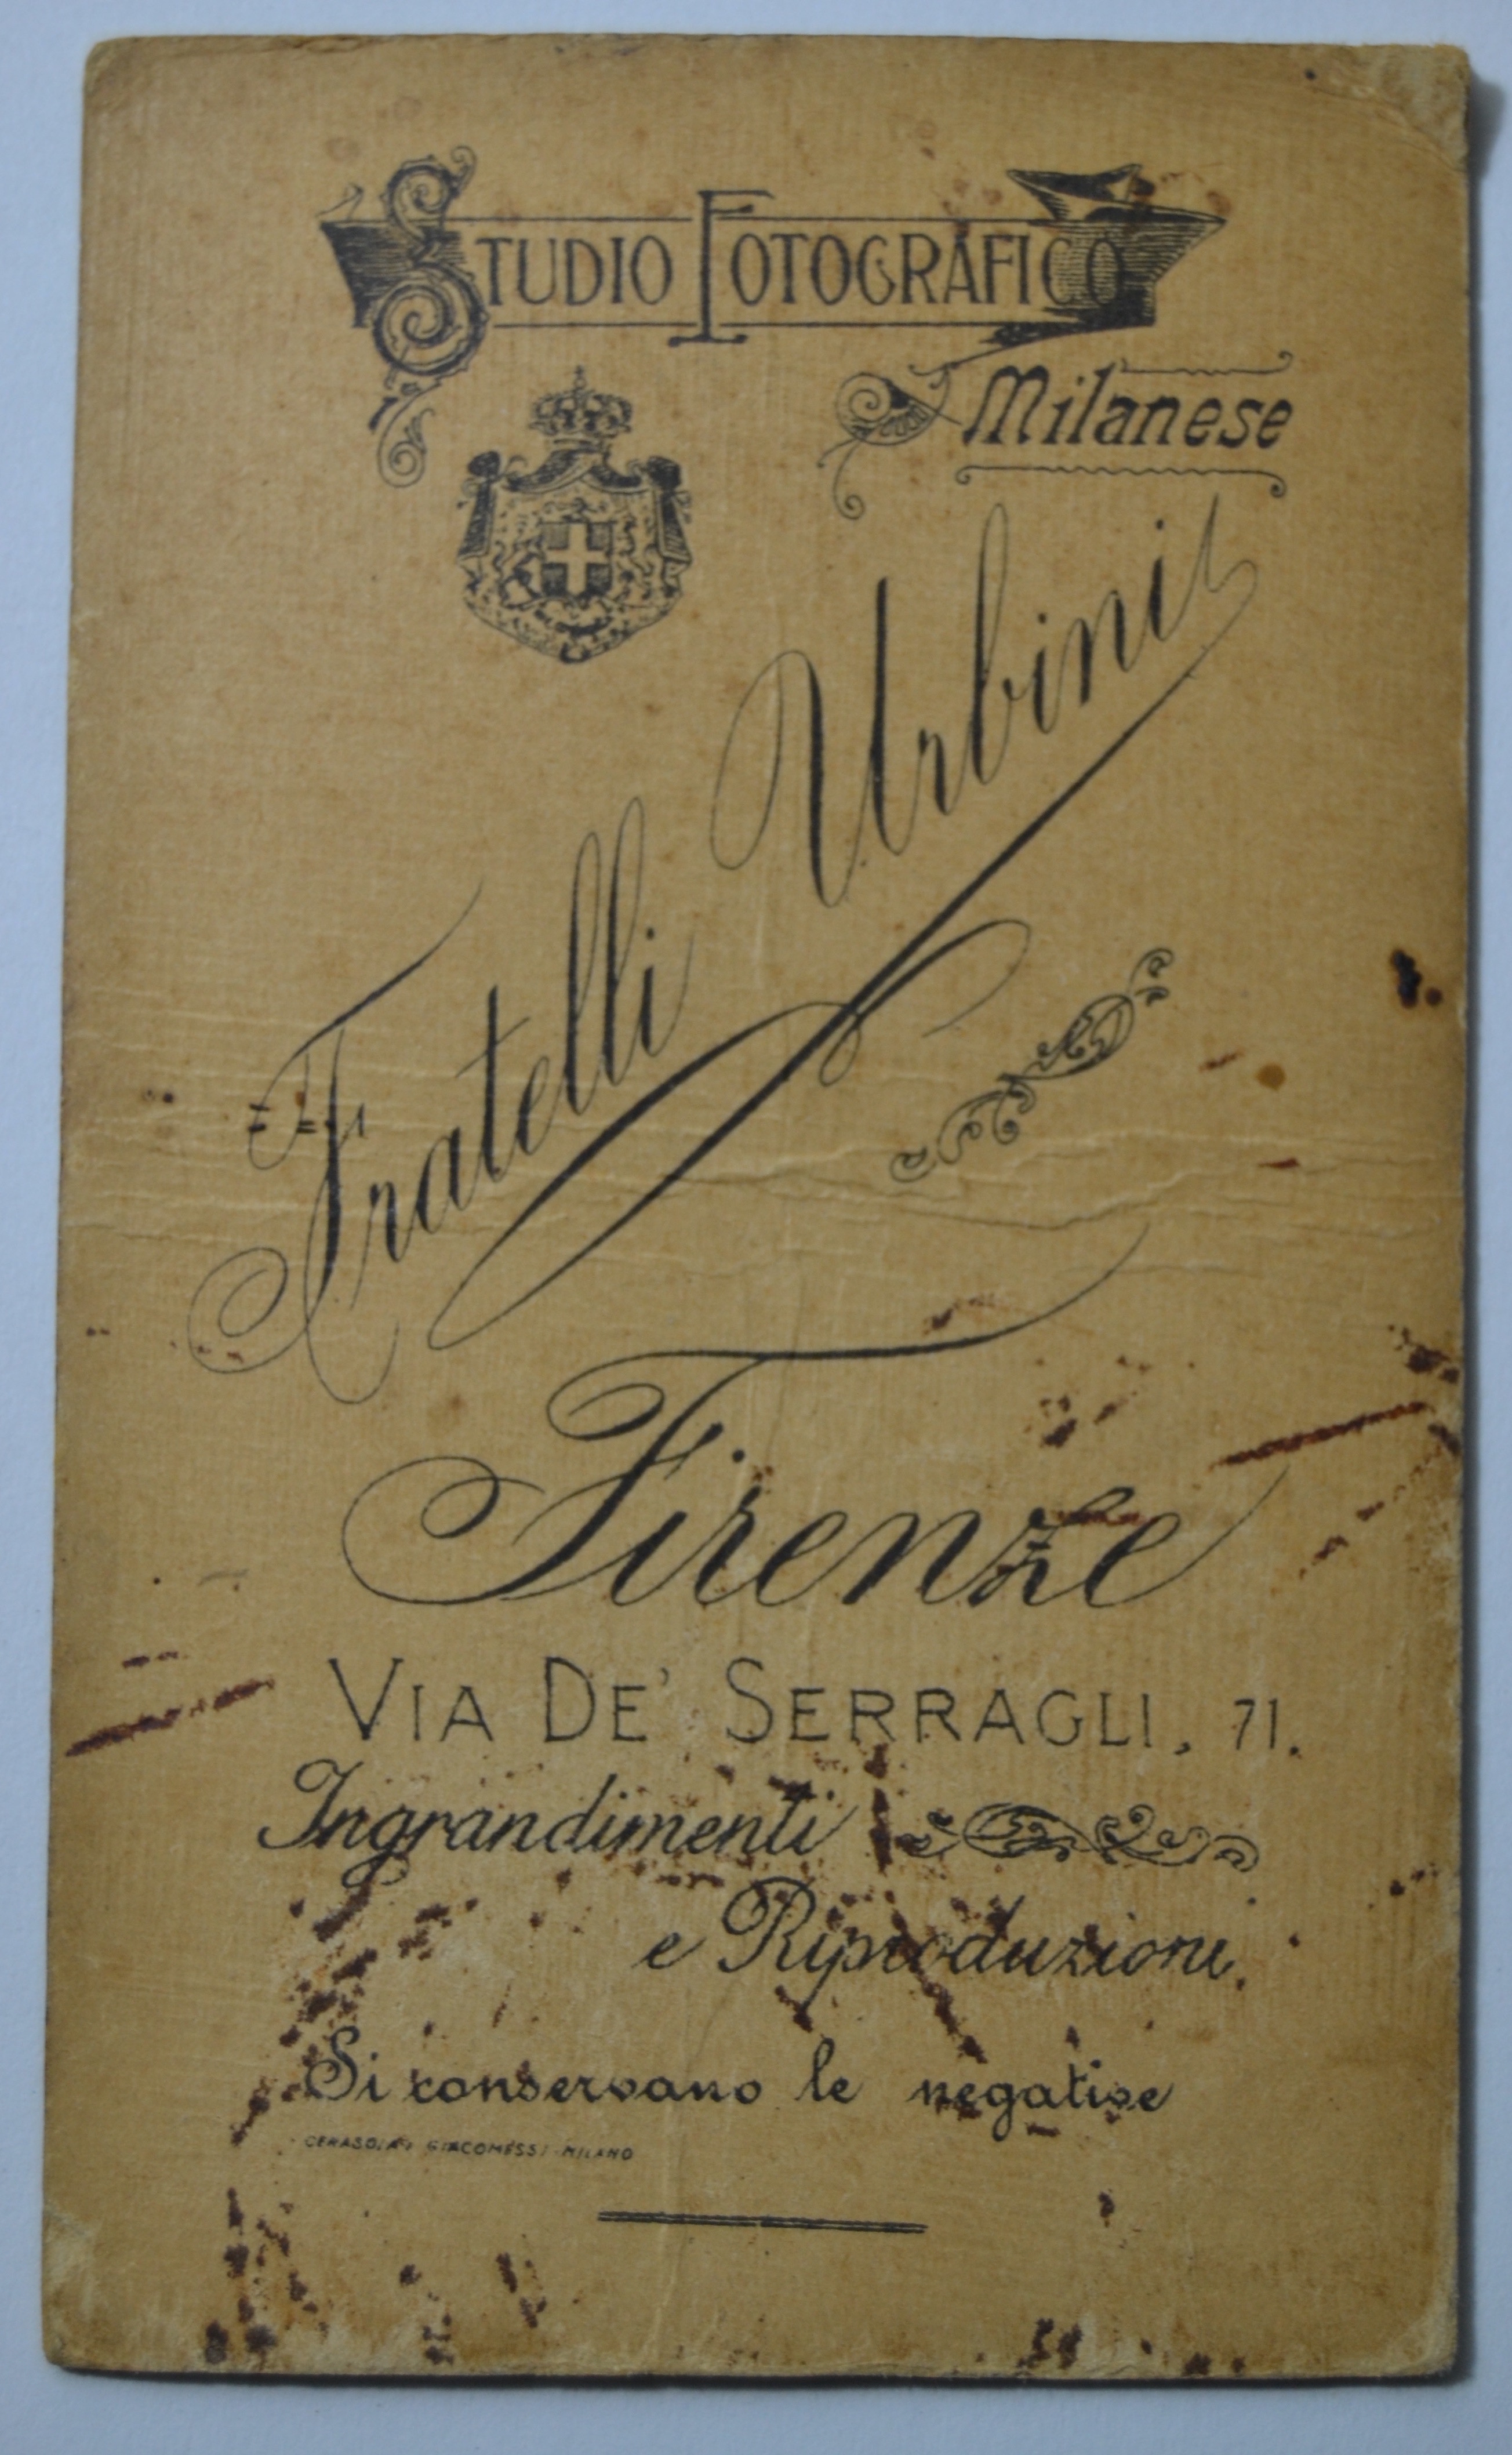 STUDIO FOTOGRAFICO
Milanese
Fratelli Urbini
Firenze
VIA DE' SERRAGLI, 71.
Ingrandimenti
e Riproduzioni.
Si conservano le negative
GIACOMESSI MILANO